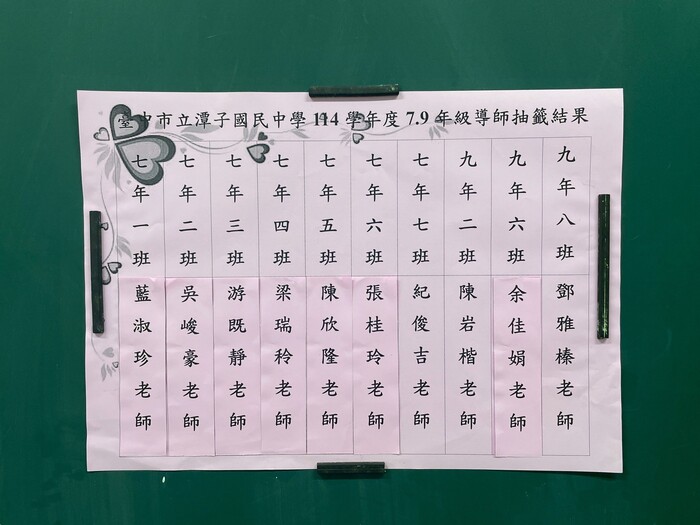 臺中市立潭子國民中學 114 學年度 7.9 年級導師抽籤結果
七年一班
藍淑珍老師
七年二班
吳峻豪老師
七年三班
游既靜老師
七年四班
梁瑞秢老師
七年五班
陳欣隆老師
七年六班
張桂玲老師
七年七班
紀俊吉老師
九年二班
陳岩楷老師
九年六班
余佳娟老師
九年八班
鄧雅榛老師